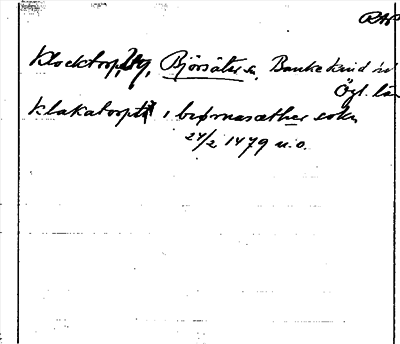 RAP
Klocktorp, Bjørsäter s. Bankekind hd
Ögl. län
Klakatorp i biornasæther sokn
24/2 1479 u.o.